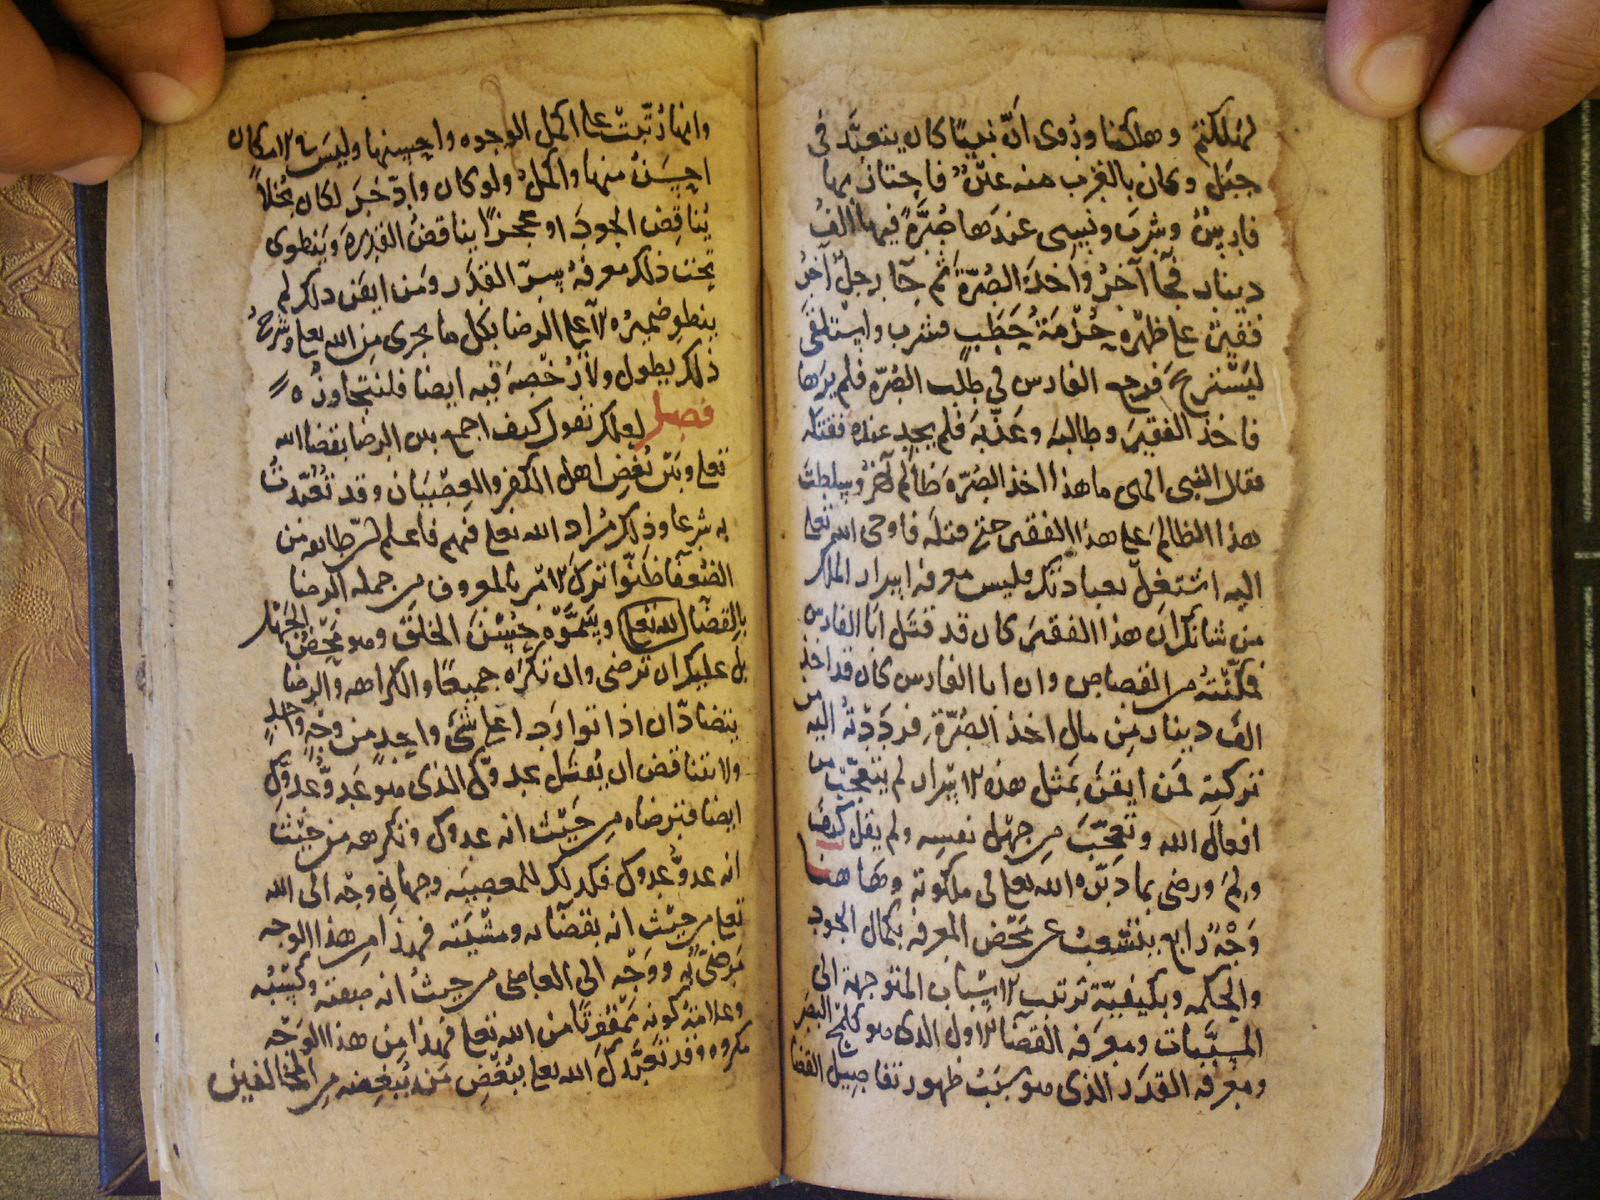 لهلكتم وهلكنا وروى انّ نبيّا كان يتعبّد فى
جبل وكان بالقرب منه عين فاجتاز بها
فارس وشرب ونسى عندها صرّة فيها الف
دينار فجا آخر واخذ الصرّة ثم جا رجل آخر
فقير على ظهره حزمة حطب فشرب واستلقى
ليستريح فرجع الفارس في طلب الصرّه فلم يرها
فاخذ الفقير وطالبه وعذّبه فلم يجد عنده فقتله
فقال النبى الهى ما هذا اخذ الصرّه ظالم آخر وسلطت
هذا الظالم على هذا الفقير حتى قتله فاوحى الله تعلى
اليه اشتغل بعبادتك فليس معرفه اسرار الملك
من شانك ان هذا الفقير كان قد قتل ابا الفارس
فمكّنته من القصاص وان ابا الفارس كان قد اخذ
الف دينار من مال اخذ الصرّة فرددته اليه من
تركته فمن ايقن بمثل هذه الاسرار لم يتعجّب من
افعال الله وتعجّب من جهل نفسه ولم يقل كيف
ولم ورضى بما دبّره الله تعلى فى ملكوته وهاهنا
وجه رابع ينشعب عن محض المعرفه بكمال الجود
والحكمه وبكيفيّة ترتيب الاسباب المتوجهة الى
المسبّبات ومعرفه القضا الاول الذى هو كلمح البصر
ومعرفه القدر الذى هو سبب ظهور تفاصيل القضا
وانها رتّبت على اكمل الوجوه واحسنها وليس فى الامكان
احسن منها واكمل ولو كان وادّخر لكان بخلا
يناقض الجود او عجزا يناقض القدره وينطوى
تحت ذلك معرفة سرّ القدر ومن ايقن ذلك لم
ينطو ضميره الا على الرضا بكل ما يجرى من الله تعلى وشرح
ذلك يطول ولا رخصه فيه ايضا فلنتجاوزه
فصل لعلك تقول كيف اجمع بين الرضا بقضا الله
تعلى وبين بغض اهل الكفر والعصيان وقد تعبّدت
به شرعا وذلك مراد الله تعلى فيهم فاعلم انّ طايفه من
الضعفا ظنّوا ترك الامر بالمعروف من جمله الرضا
بالقضا لله تعلى ويسمّوه حسن الخلق وهو محض الجهل
بل عليك ان ترضى وان تكره جميعا والكراهه والرضا
يتضادّان اذا تواردا على شئ واحد من وجه واحد
ولا تتناقض ان يقتل عدوّك الذى هو عدوّ عدوّك
ايضا فترضاه من حيث انه عدوك وتكرهه من حيث
انه عدوّ عدوك فكذلك للمعصيه وجهان وجه الى الله
تعلى من حيث انه بقضائه ومشيّته فهذا من هذا الوجه
مرضىّ به ووجه الى العاصى من حيث انه صفته وكسبه
وعلامة كونه ممقوتا من الله تعلى فهذا من هذا الوجه
مكروه وقد تعبّدك الله تعلى ببغض من يبغضه من المخالفين